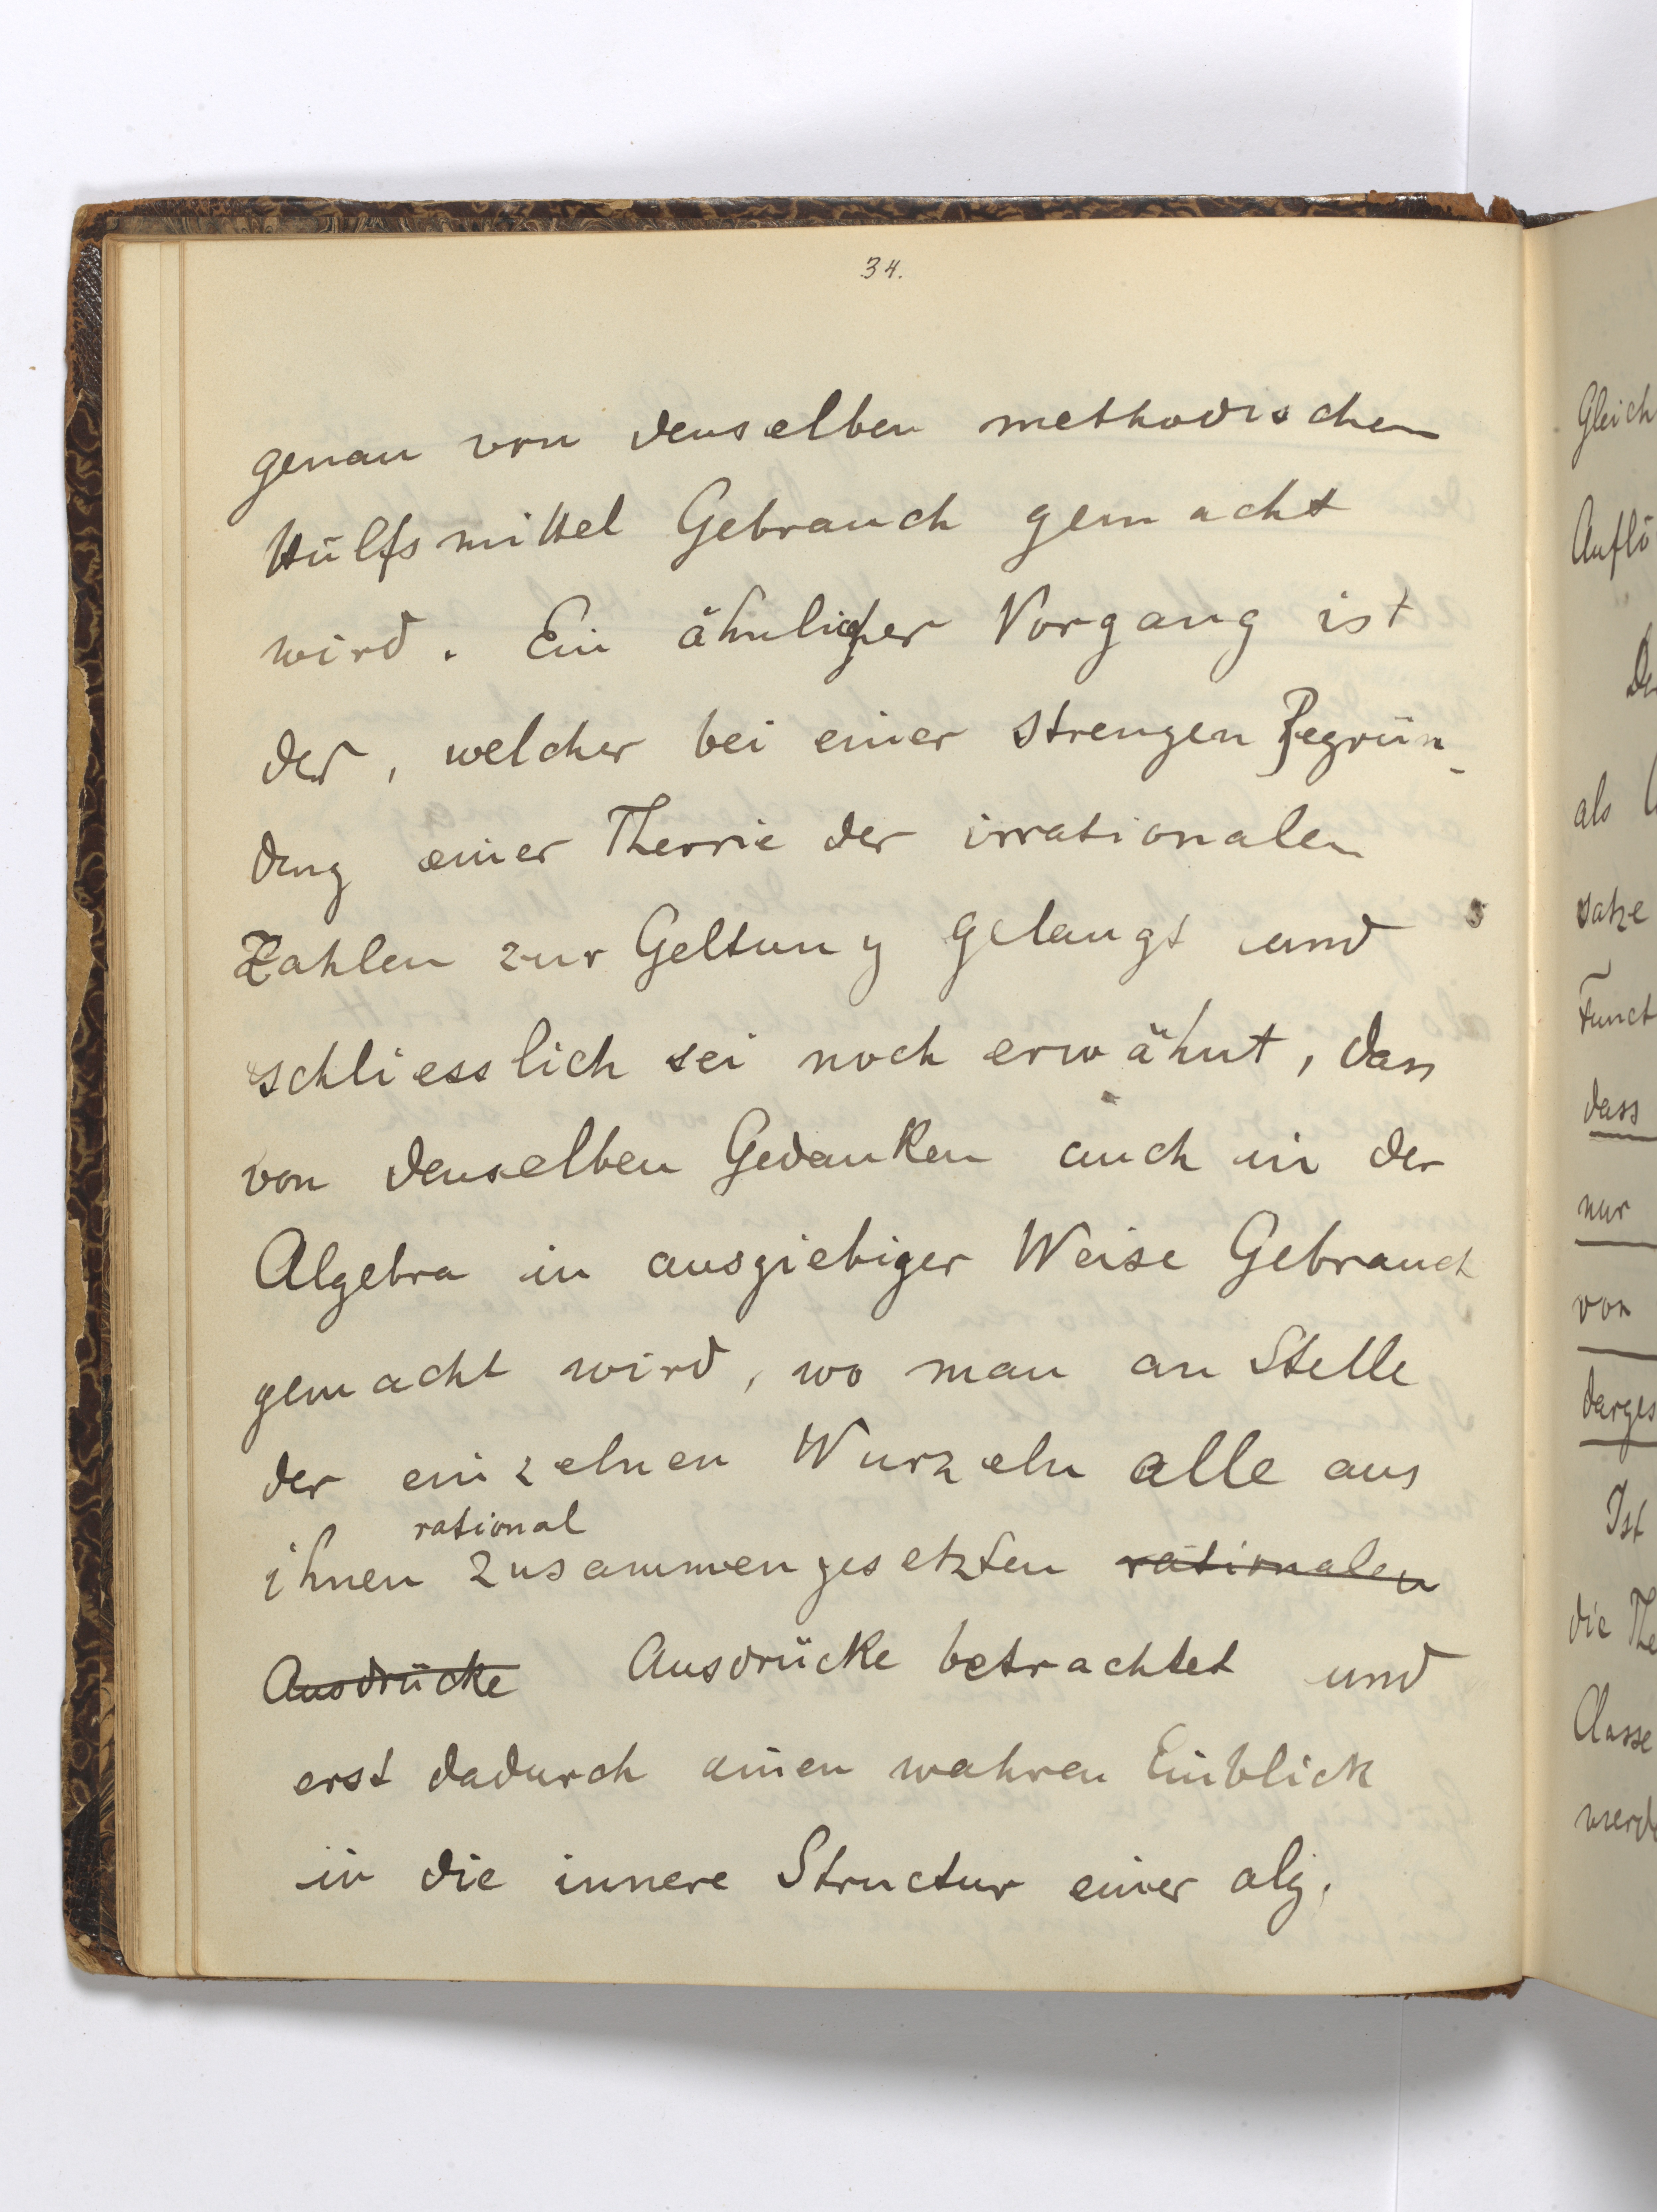 34.
genau von denselben methodischen
Hülfsmittel Gebrauch gemacht
wird. Ein ähnlicher Vorgang ist
der, welcher bei einer strengen Begrün-
dung einer Theorie der irrationalen
Zahlen zur Geltung gelangt und
schliesslich sei noch erwähnt, dass
von denselben Gedanken auch in der
Algebra in ausgiebiger Weise Gebrauch
gemacht wird, wo man an Stelle
der einzelnen Wurzeln alle aus
rational
ihnen zusammengesetzten rationalen
Ausdrücke Ausdrücke betrachtet und
erst dadurch einen wahren Einblick
in die innere Structur einer alg.
Gleich
Auflö
De
als
satze
Funct
dass
nur
von
darges
Ist
die The
Classe
werd